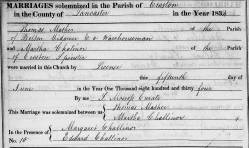 MARRIAGES solemnized in the Parish of Croston
in the County of Lancaster in the Year 183
Thomas Mather of the Parish
of Bolton Warehouseman
and Martha Challinor of the Parish
of Croston Spinster
were married in this Church by Licence
this fifteenth day of
June in the Year One thousand eight hundred and thirty four
By me Curate
This Marriage was solemnized between us Thomas Mather
Martha Challinor
In the Presence of Margaret Challinor
No. 10 Edward Challinor